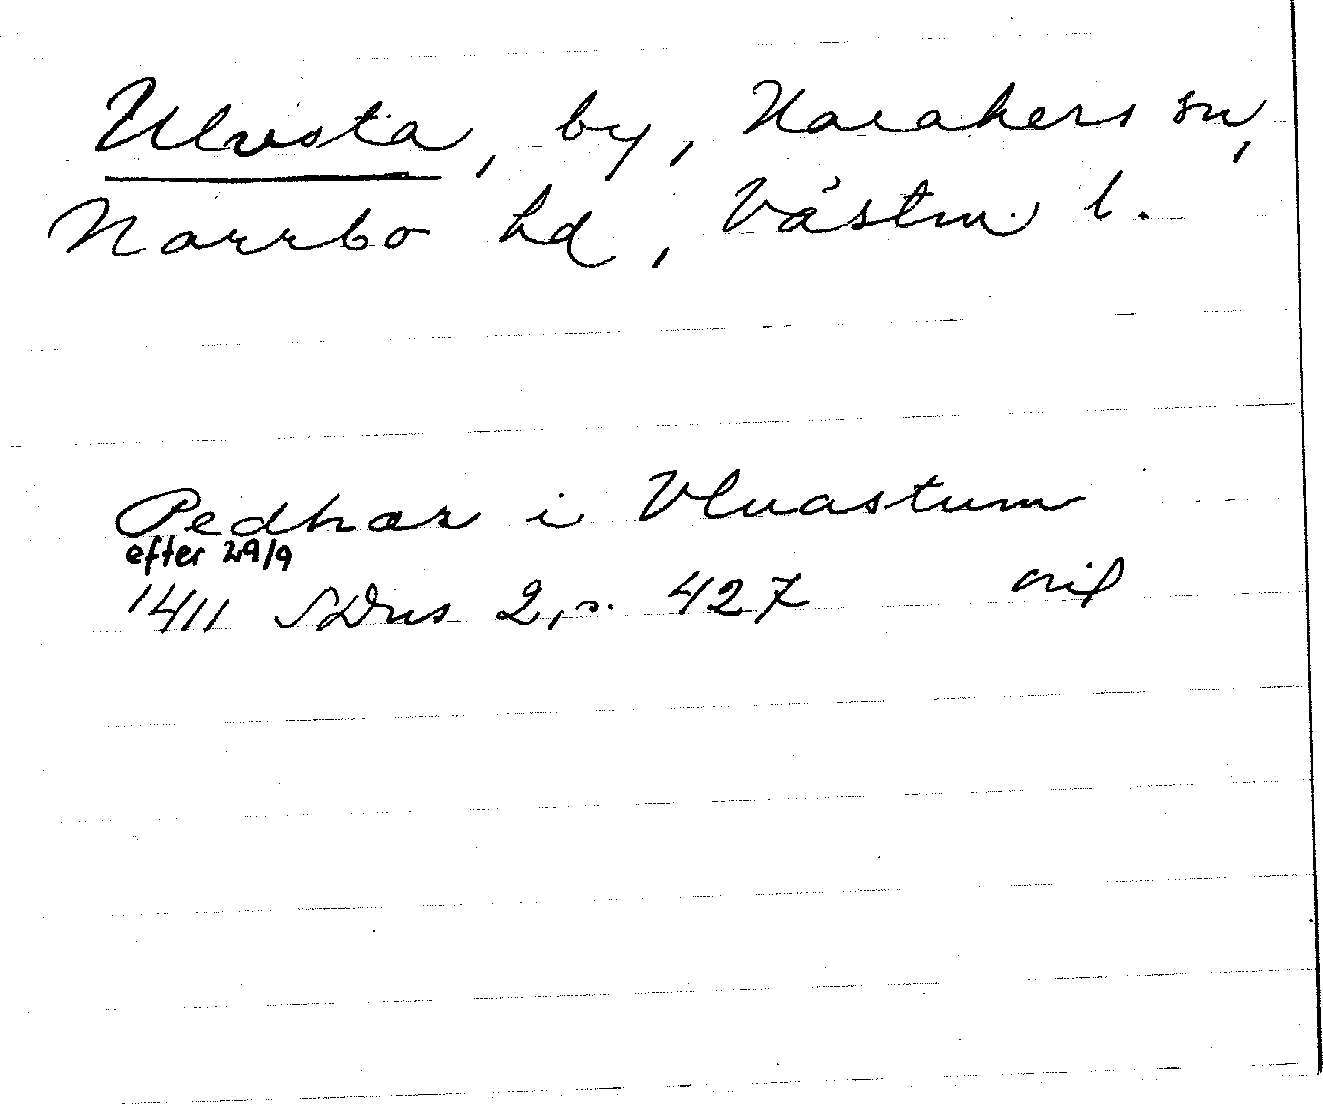 Ulvsta, by, Harakers sn,
Norrbo hd, Västm. l.
Pedhar i Vluastum
efter 29/9
1411 SDns 2, s. 427 oril